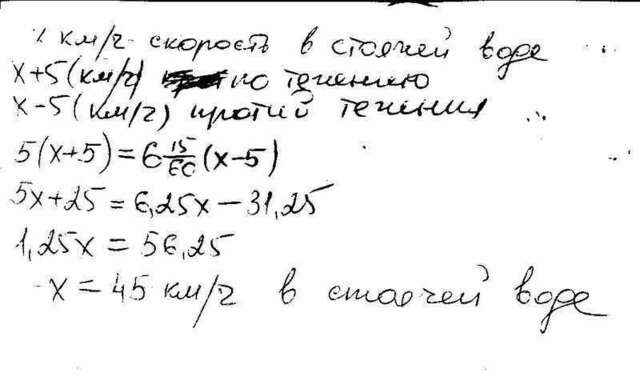 х км/г - скорость в стоячей воде
х+5 (км/г) по течению
х-5 (км/г) против течения
5(х+5)=6 15/60 (х-5)
5х+25=6,25х-31,25
1,25х=56,25
х=45 км/г в стоячей воде